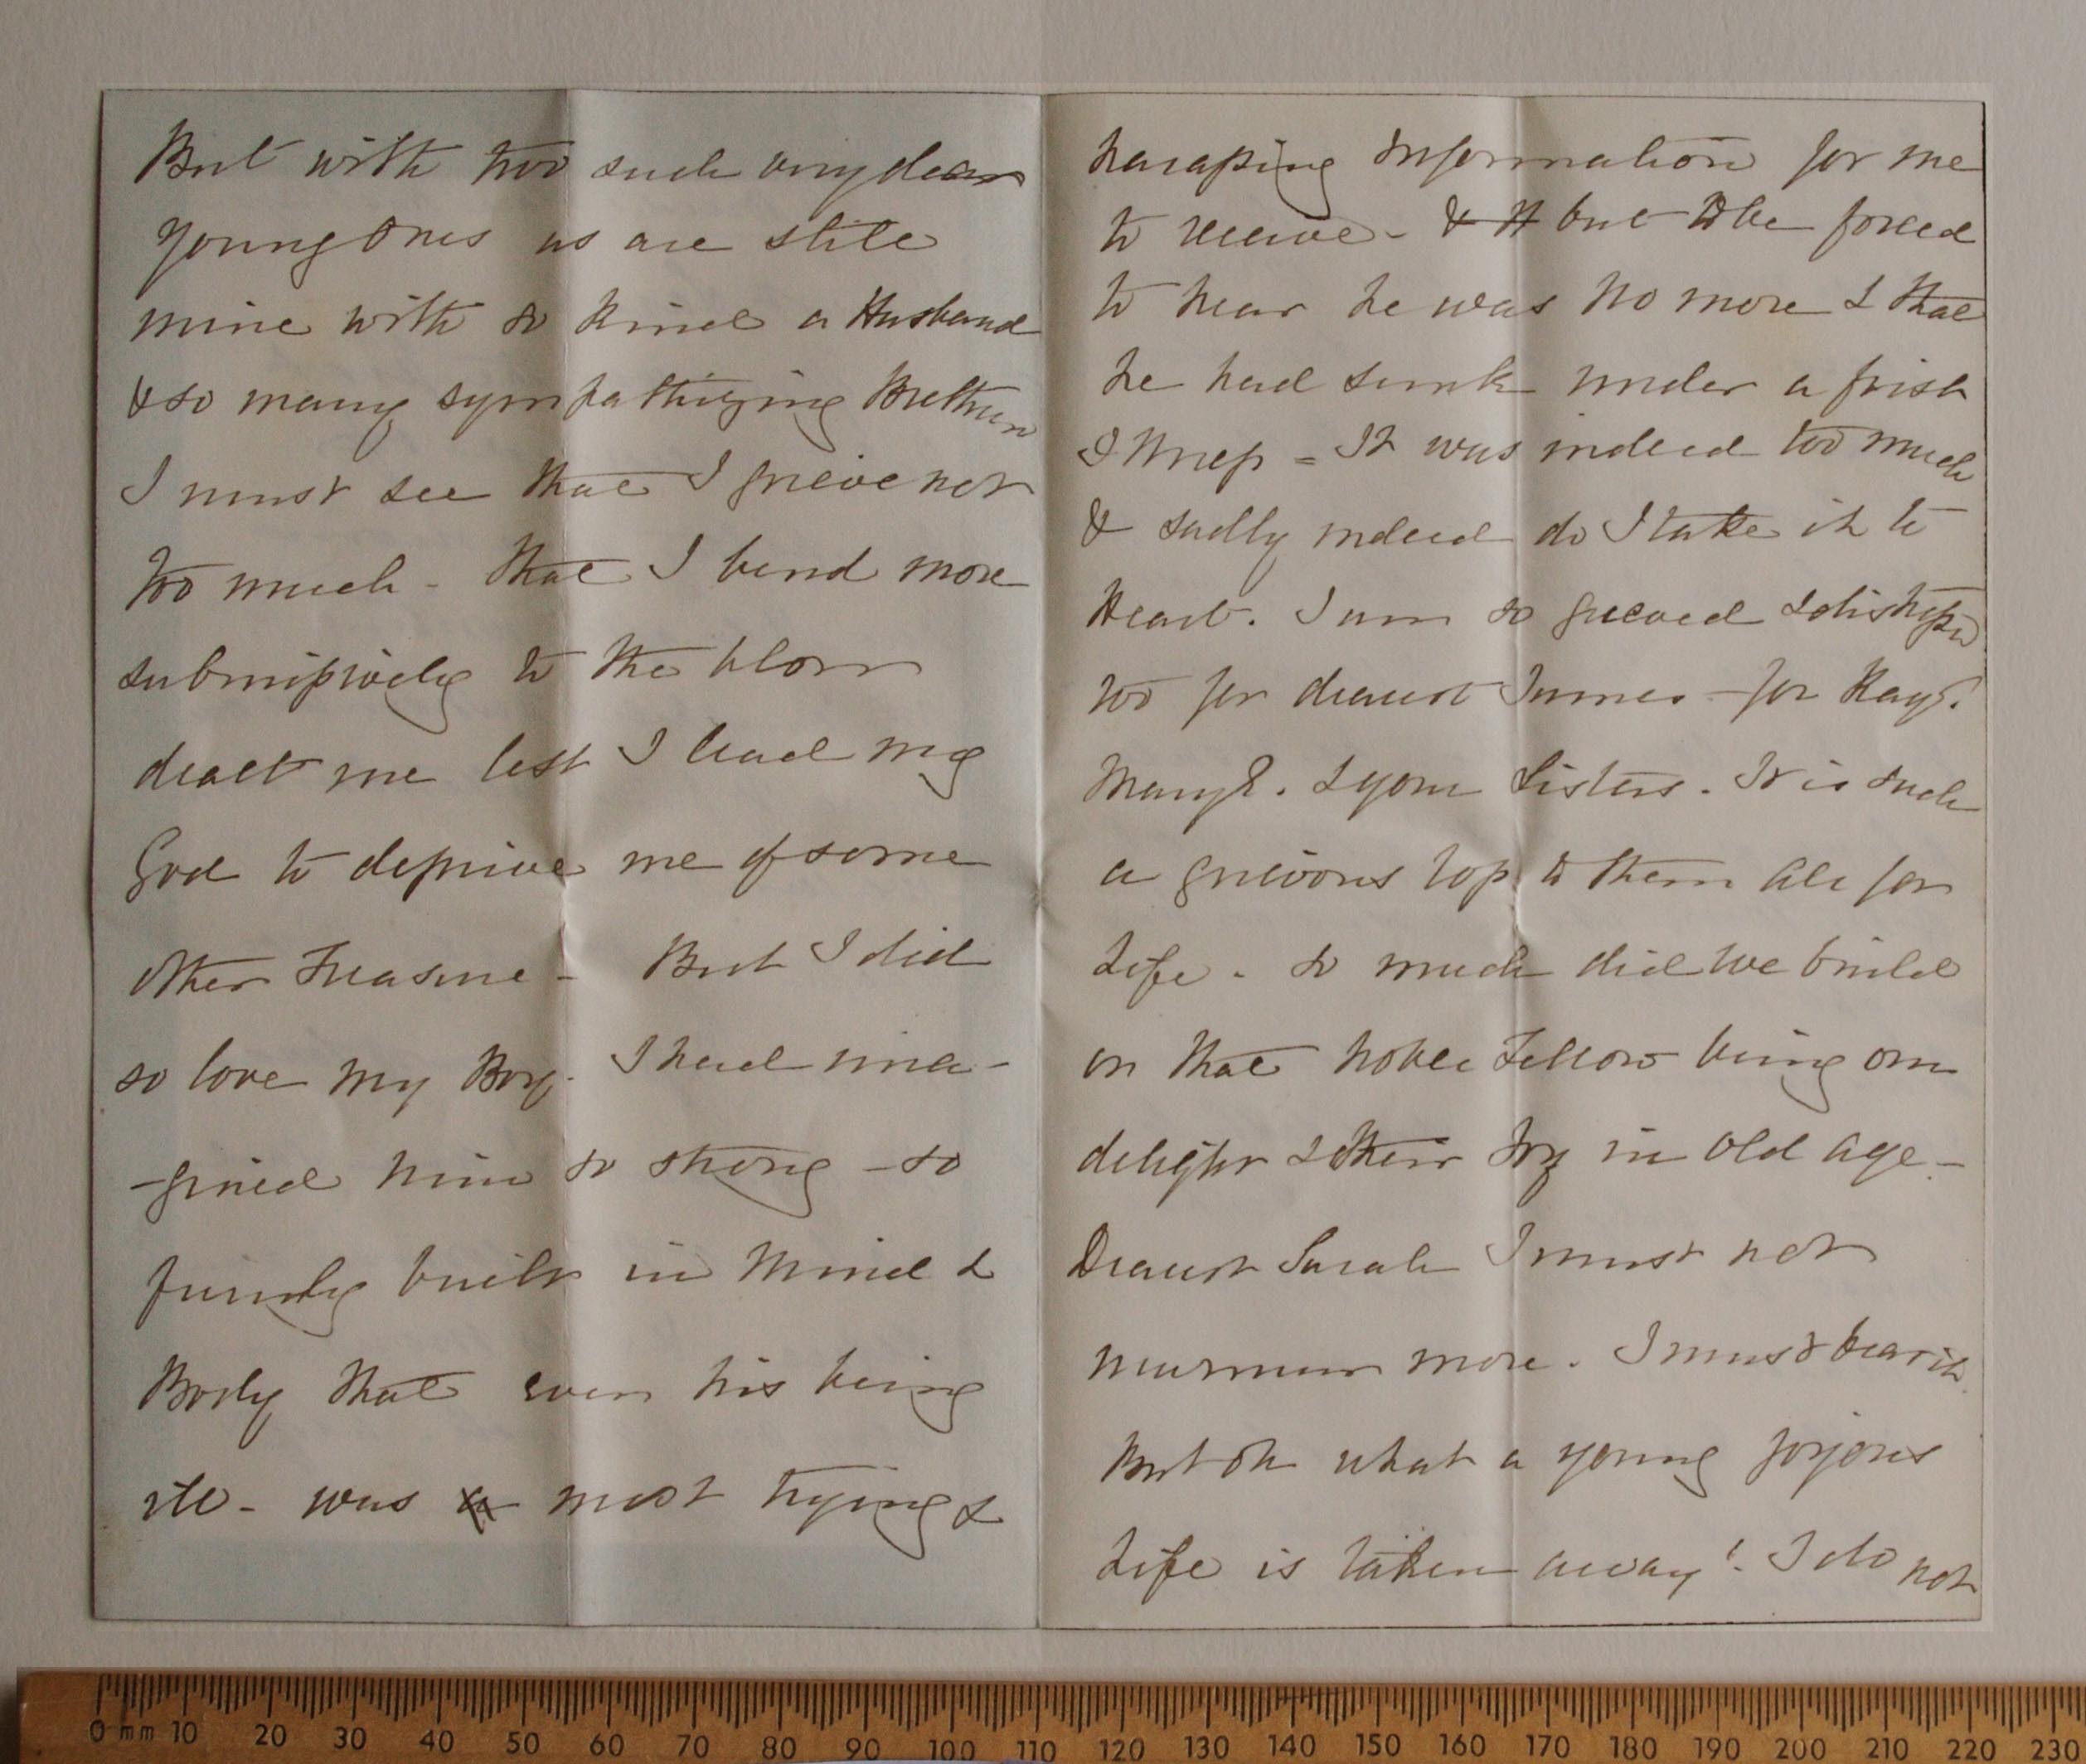 But with two such very dear
young ones as are still
mine with so kind a Husband
& so many sympathizing Brethren
I must see that I grieve not
too much - that I bend more
submissively to the blow
dealt me lest I lead my
God to deprive me of some
other Treasure - But I did
so love my Boy. I had ima-
-gined him so strong - so
firmly built in Mind &
Body that even his being
ill - was a most trying &
harassing information for me
to receive - & It but to be forced
to hear he was no more & that
he had sunk under a first
Illness - It was indeed too much
& sadly indeed do I take it to
Heart. I am so grieved & distressed
too for dearest James - for Kay
Mary E. & your Sisters. It is such
a grievous loss to them all for
Life - so much did we build
on that noble Fellow being our
delight & their Joy in old age -
Dearest Sarah I must not
murmur more. I must bear it
But oh what a young joyous
Life is taken away! I do not
0 mm 10 20 30 40 50 60 70 80 90 100 110 120 130 140 150 160 170 180 190 200 210 220 230